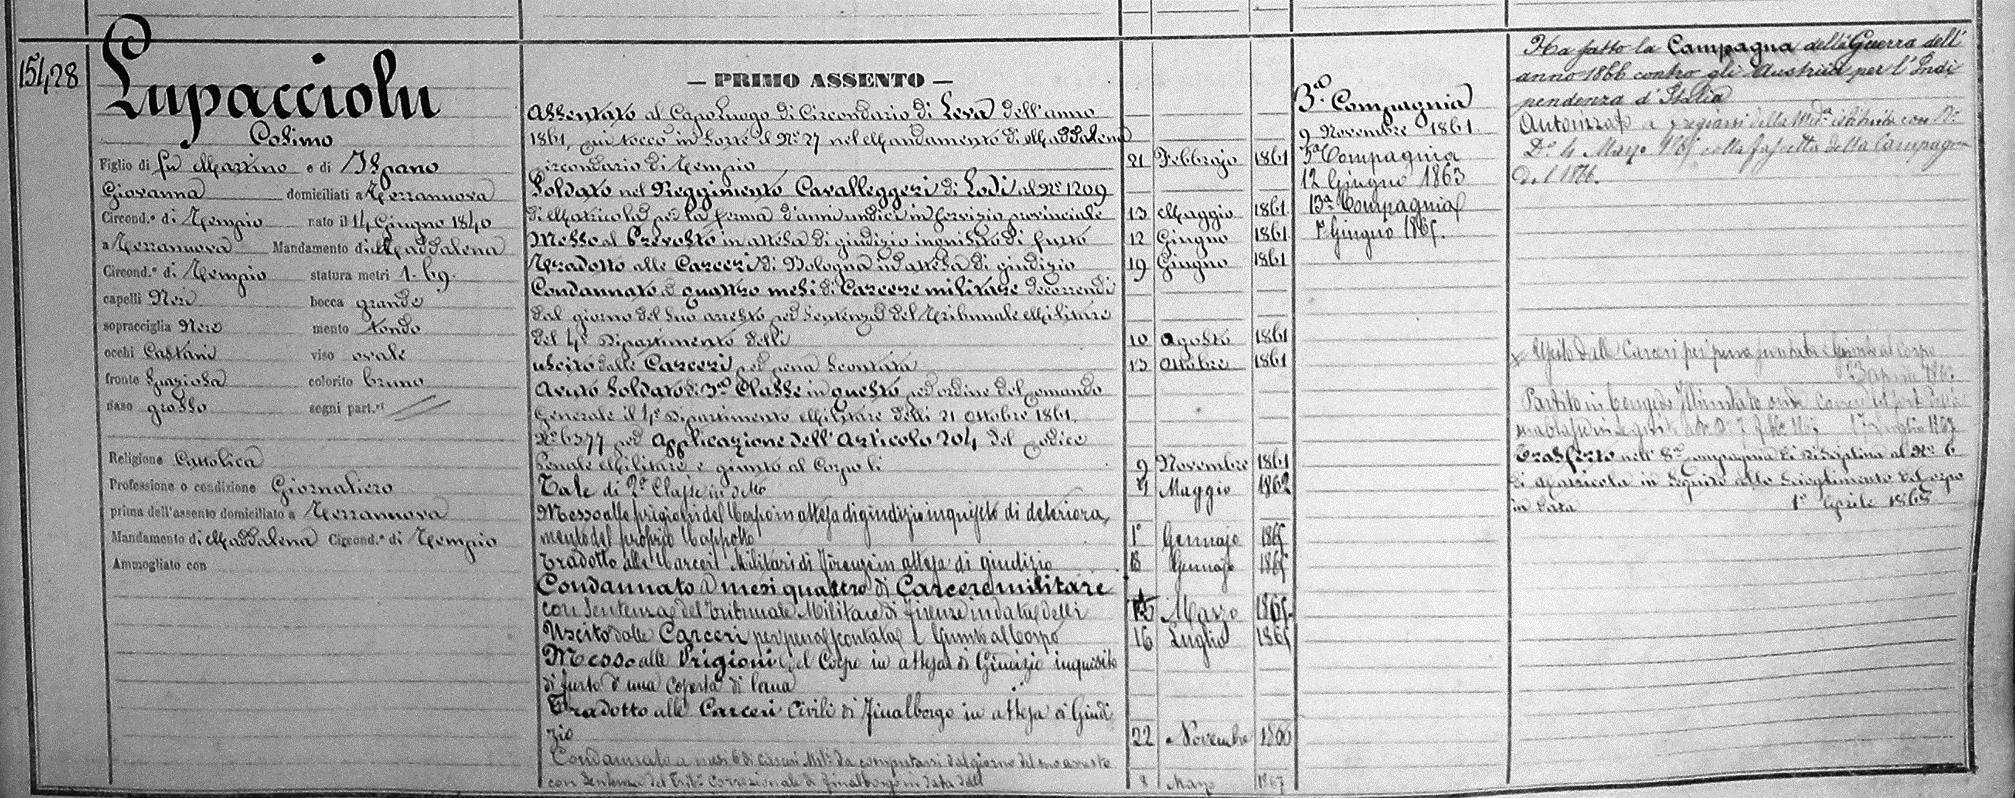 15428
Lupacciolu
Cosimo
Figlio di fu Martino e di Ispano
Giovanna domiciliati a Terranuova
Circond.º di Tempio nato il 14 Giugno 1840
a Terranuova Mandamento di Maddalena
Circond.º di Tempio statura metri 1.69.
capelli Neri bocca grande
sopracciglia Nere mento tondo
occhi Castani viso ovale
fronte Spaziosa colorito bruno
naso grosso segni part.ri
Religione Cattolica
Professione o condizione Giornaliero
prima dell'assento domiciliato a Terranuova
Mandamento di Maddalena Circond.º di Tempio
Ammogliato con
— PRIMO ASSENTO —
Assentato al Capo Luogo di Circondario di Leva dell'anno
1861, cui toccò in sorte il Nº 27 nel Mandamento di Maddalena
circondario di Tempio 21 Febbrajo 1861
Soldato nel Reggimento Cavalleggeri di Lodi al Nº 1209
di Matricola per la ferma d'anni undici in servizio provinciale 13 Maggio 1861
Messo al Prevosto in attesa di giudizio inquisito di furto 12 Giugno 1861
Tradotto alle Carceri di Bologna in attesa di giudizio 19 Giugno 1861
Condannato a quattro mesi di Carcere militare decorrendi
dal giorno del suo arresto per sentenza del Tribunale Militare
del 4º Dipartimento delli 10 Agosto 1861
uscito dalle Carceri per pena scontata 13 Ottobre 1861
Avuto Soldato di 3ª Classe in questo per ordine del Comando
Generale il 4º Dipartimento Militare delli 21 Ottobre 1861.
Nº 6377 per applicazione dell'Articolo 204 del Codice
Penale Militare e giunto al Corpo li 9 Novembre 1861
Tale di 2ª Classe in detto 21 Maggio 1862
Messo alle prigioni del Corpo in attesa di giudizio inquisito di deteriora
mento del proprio Cappotto 1º Gennajo 1865
Tradotto alle Carceri Militari di Firenze in attesa di giudizio 13 Gennajo 1865
Condannato a mesi quattro di Carcere militare
con Sentenza del Tribunale Militare di Firenze in data delli 15 Marzo 1865.
Uscito dalle Carceri per pena scontata e Giunto al Corpo 16 Luglio 1865
Messo alle Prigioni del Corpo in attesa di Giudizio inquisito
di furto d'una coperta di lana
Tradotto alle Carceri Civili di Finalborgo in attesa di Giudi
zio 22 Novembre 1866
Condannato a mesi 6 di Carceri Mil.i da computarsi dal giorno del suo arresto
con Sentenza del Trib.e Correzionale di Finalborgo in data delli 8 Marzo 1867
3ª Compagnia
9 Novembre 1861.
5ª Compagnia
12 Giugno 1863
13ª Compagnia
1º Giugno 1865.
Ha fatto la Campagna della Guerra dell'
anno 1866 contro gli Austriaci per l'Indi
pendenza d'Italia
Autorizzato a fregiarsi della Med.a istituita con R.
D.º 4 Marzo 1865 colla fascetta della Campagna
del 1866.
Uscito dalle Carceri per pena scontata e Giunto al Corpo
Partito in Congedo Illimitato
Trasferto nell' 8ª Compagnia di Disciplina al Nº 6
di Matricola in Seguito allo Scioglimento del corpo
in data 1º Aprile 1865